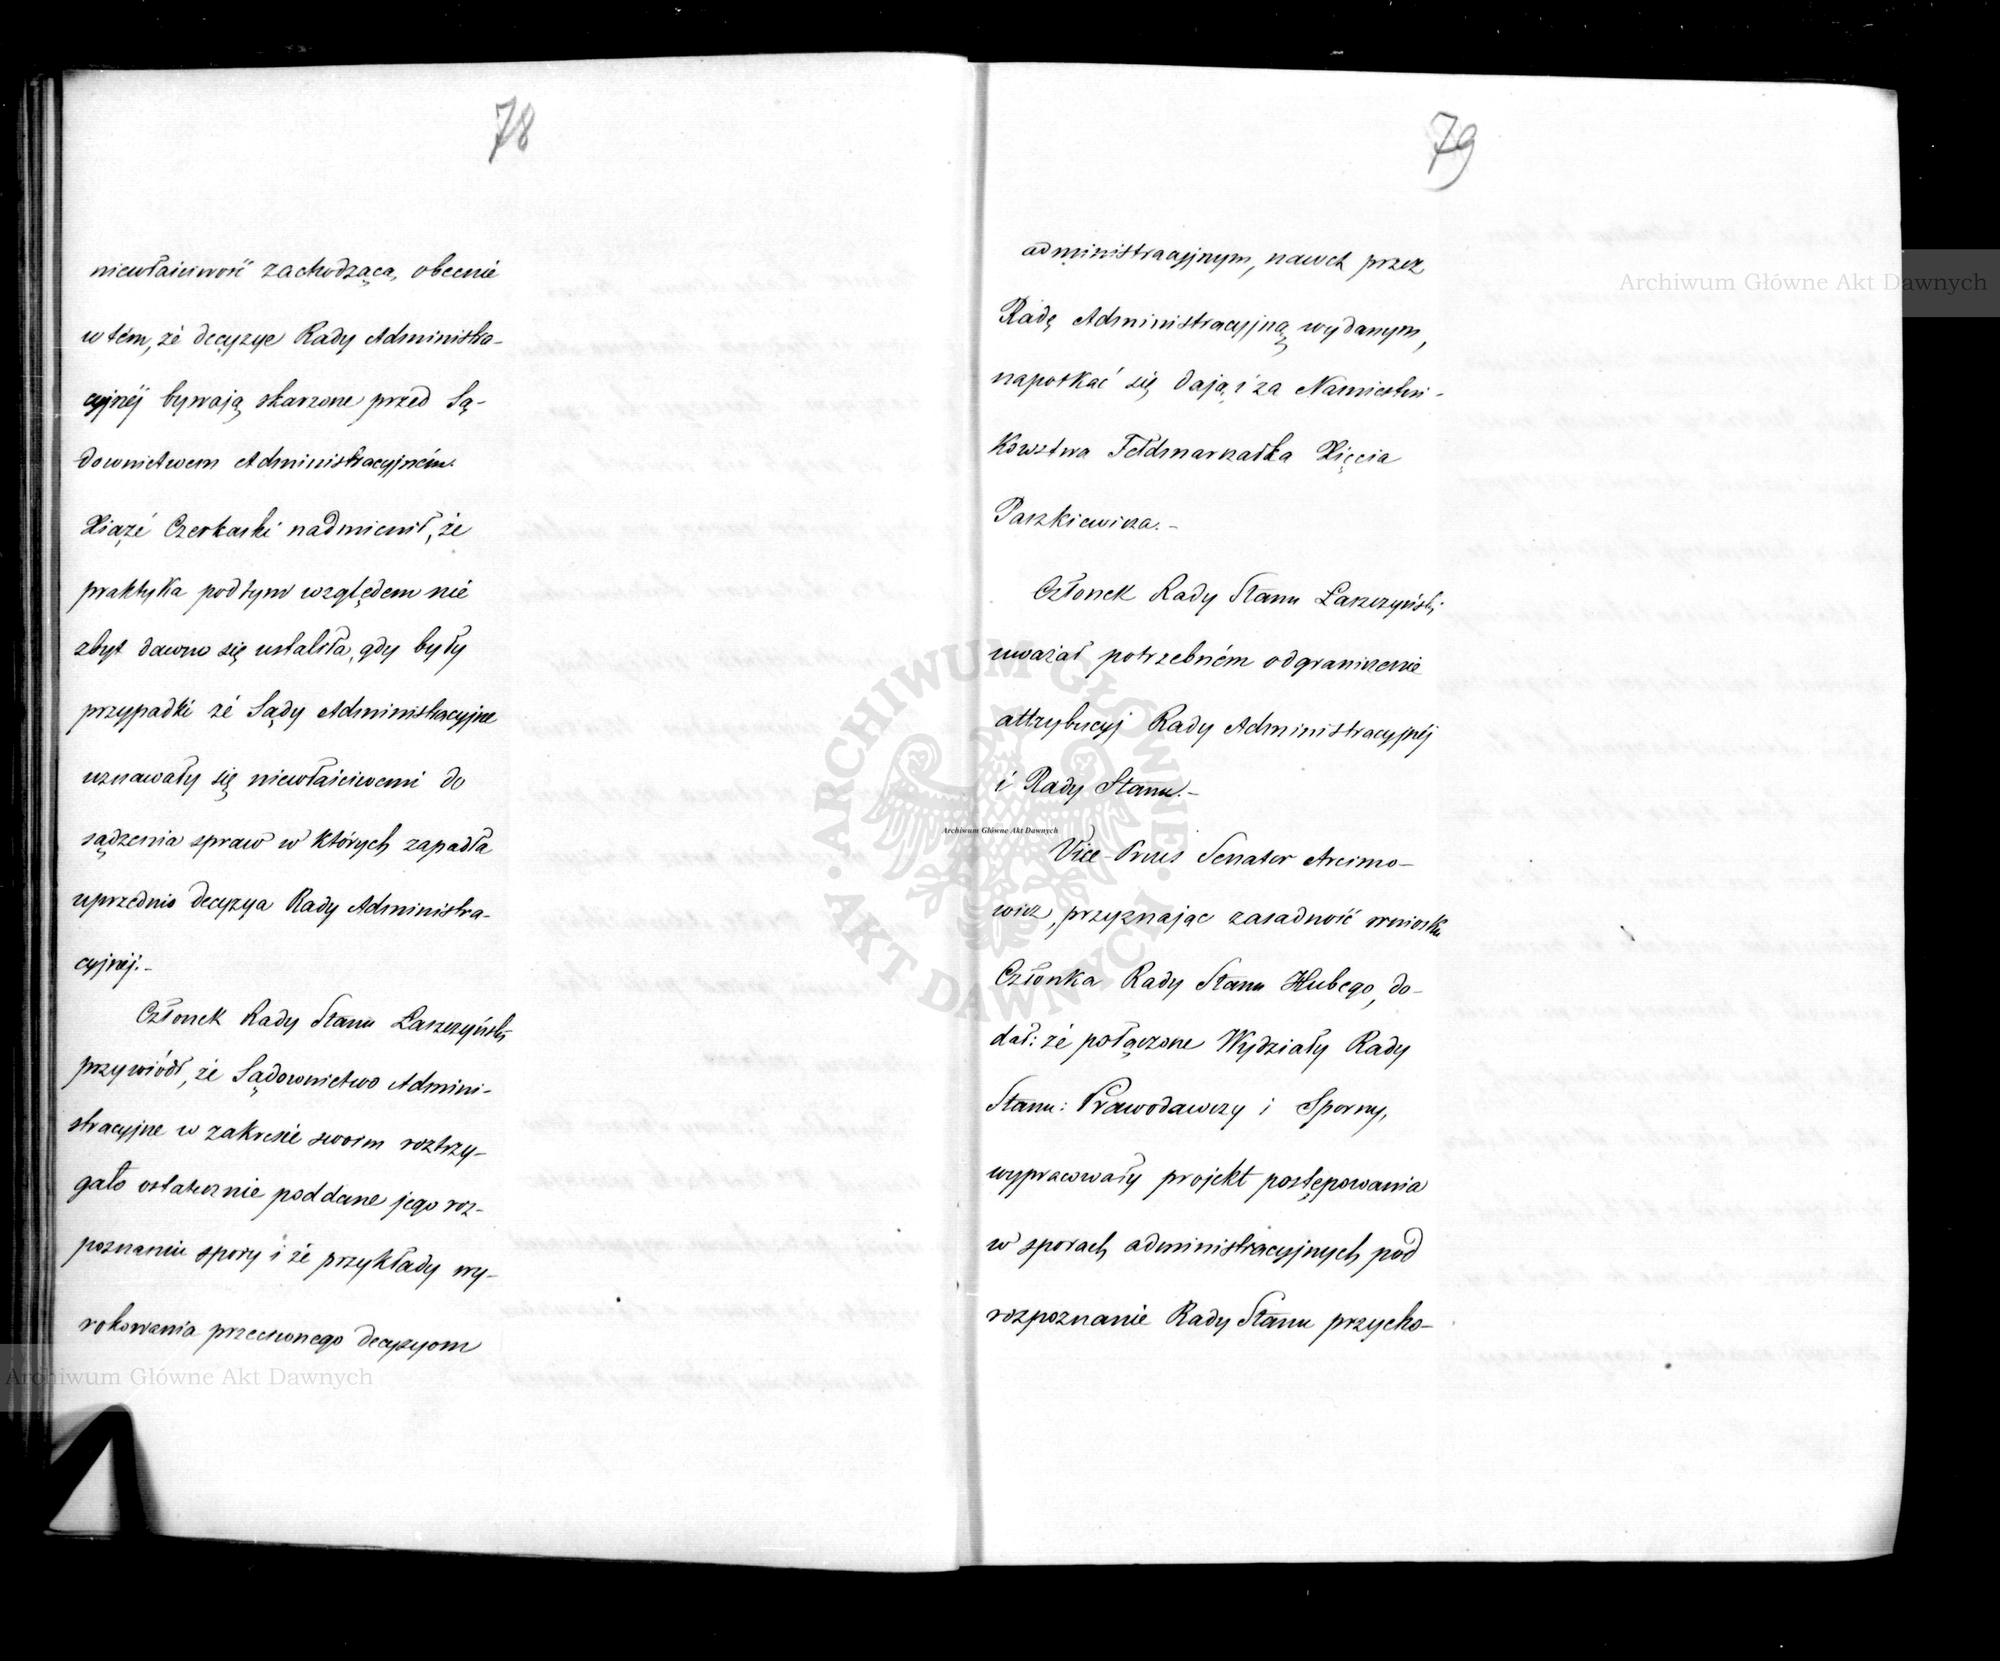 78
niewłaściwość zachodząca, obecnie
w tém, że decyzye Rady Administra-
cyjnéj bywają skarżone przed Są-
downictwem Administracyjném.
Xiążę Czerkaski nadmienił, że
praktyka pod tym względem nie
zbyt dawno się ustaliła, gdy były
przypadki że Sądy Administracyjne
uznawały się niewłaściwemi do
sądzenia spraw w których zapadła
uprzednio decyzya Rady Administra-
cyjnéj.-
Członek Rady Stanu Łaszczyński
przywiódł, że Sądownictwo Admini-
stracyjne w zakresie swoim roztrzy-
gało ostatecznie poddane jego roz-
poznaniu spory i że przykłady wy-
rokowania przeciwnego decyzyom
79
administracyjnym, nawet przez
Radę Administracyjną wydanym,
napotkać się dają i za Namiestni-
kowstwa Feldmarszałka Xięcia
Paszkiewicza.-
Członek Rady Stanu Łaszczyński
uważał potrzebném odgraniczenie
attrybucyj Rady Administracyjnéj
i Rady Stanu.-
Vice-Prezes Senator Arcimo-
wicz, przyznając zasadność wniosku
Członka Rady Stanu Hubego, do-
dał: że połączone Wydziały Rady
Stanu: Prawodawczy i Sporny,
wypracowały projekt postępowania
w sporach administracyjnych pod
rozpoznanie Rady Stanu przycho-
Archiwum Główne Akt Dawnych
Archiwum Główne Akt Dawnych
Archiwum Główne Akt Dawnych
ARCHIWUM GŁÓWNE AKT DAWNYCH